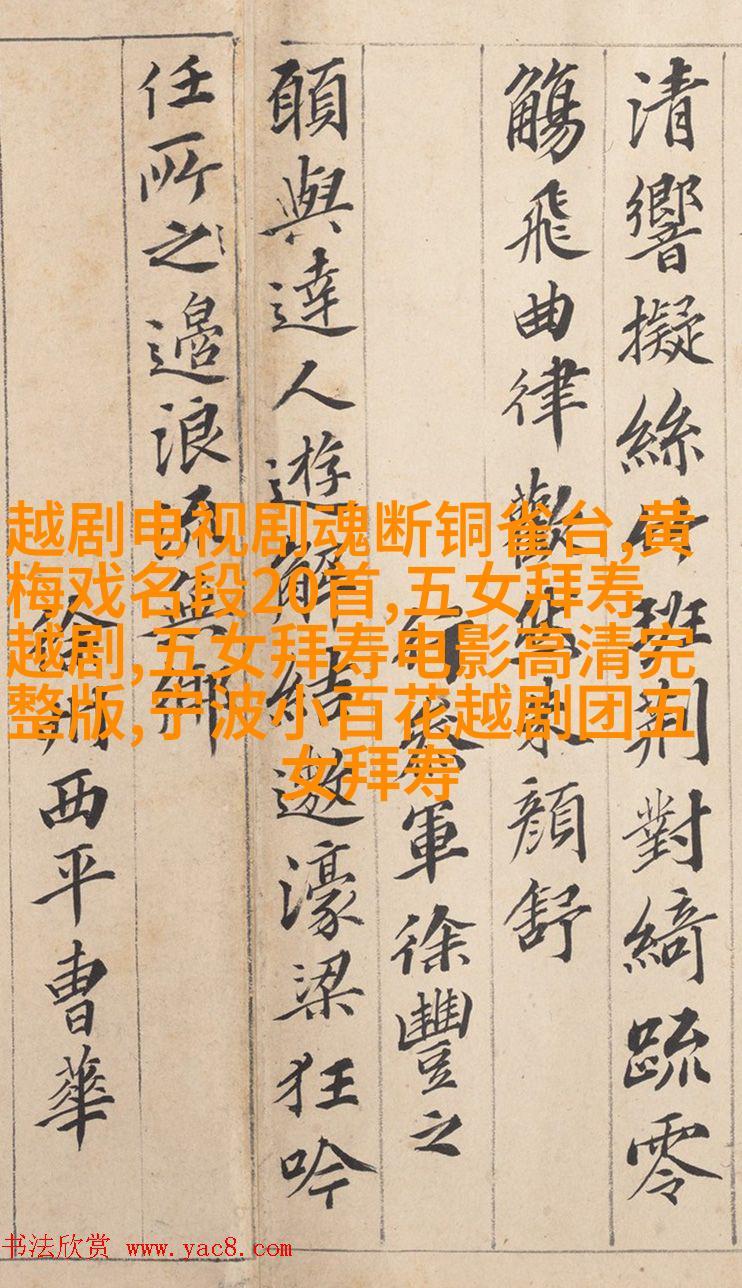 清響擬絲竹班荊對綺疏零
觴飛曲律歡然朱顏舒
行參軍徐豐之
願與達人遊解結遨濠梁狂吟
任所之邉浪無鄉
徐州西平曹華
越剧电视剧魂断铜雀台,黄
梅戏名段20首,五女拜寿
越剧,五女拜寿电影高清完
整版,宁波小百花越剧团五
女拜寿
书法欣赏 www.yac8.com